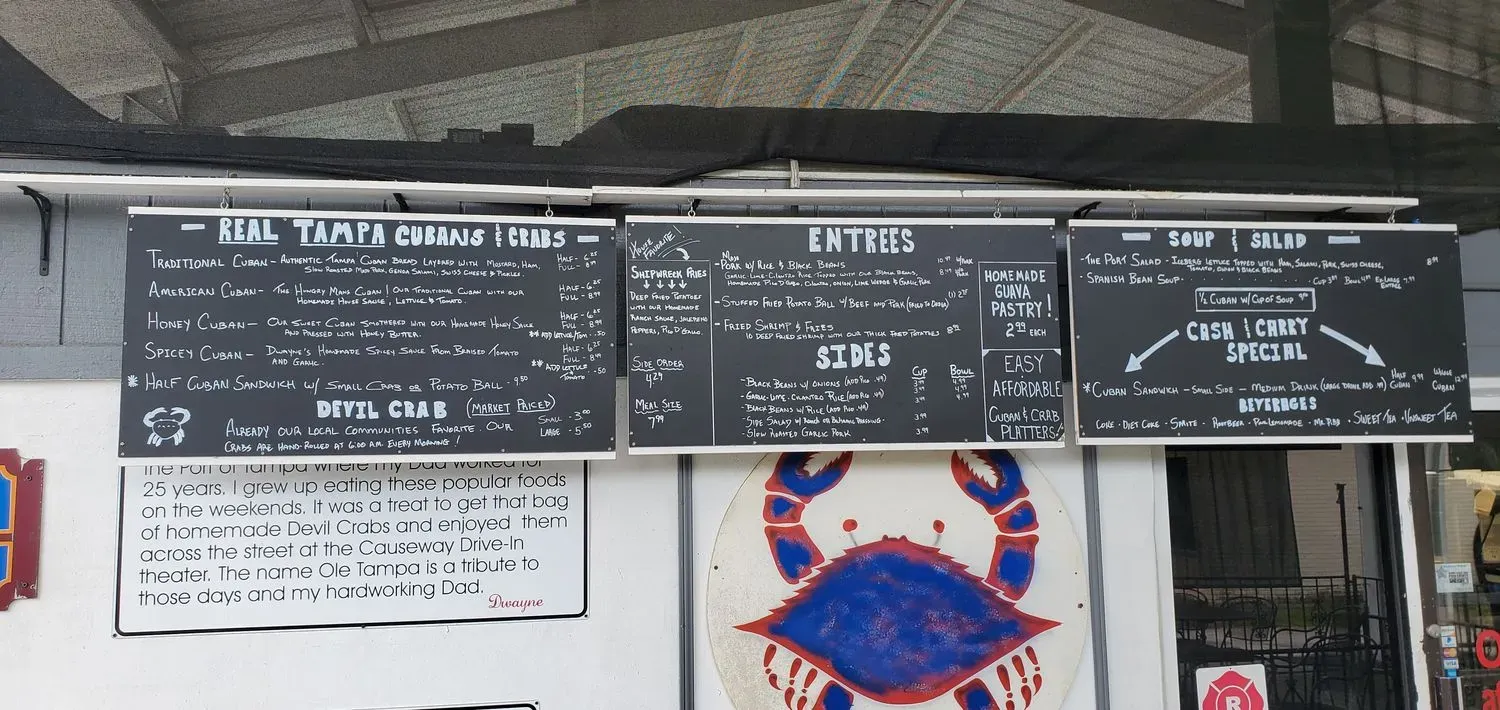 REAL TAMPA CUBANS & CRABS
TRADITIONAL CUBAN - AUTHENTIC TAMPA CUBAN BREAD LAYERED WITH MUSTARD, HAM,
SLOW ROASTED MOJO PORK, GENOA SALAMI, SWISS CHEESE & PICKLES.
HALF - 6.25
FULL - 8.99
AMERICAN CUBAN - THE HUNGRY MANS CUBAN! OUR TRADITIONAL CUBAN WITH OUR
HOMEMADE HOUSE SAUCE, LETTUCE & TOMATO.
HALF - 6.25
FULL - 8.99
HONEY CUBAN - OUR SWEET CUBAN SMOTHERED WITH OUR HOMEMADE HONEY SAUCE
AND PRESSED WITH HONEY BUTTER.
HALF - 6.25
FULL - 8.99
** ADD LETTUCE/TOM - .50
SPICEY CUBAN - DWAYNE'S HOMEMADE SPICEY SAUCE FROM BRAISED TOMATO
AND GARLIC.
HALF - 6.25
FULL - 8.99
** ADD LETTUCE
TOMATO - .50
* HALF CUBAN SANDWICH W/ SMALL CRAB OR POTATO BALL - 9.50
DEVIL CRAB (MARKET PRICED)
ALREADY OUR LOCAL COMMUNITIES FAVORITE. OUR
CRABS ARE HAND-ROLLED AT 6:00 AM EVERY MORNING!
SMALL - 3.00
LARGE - 5.50
HOUSE FAVORITE!
SHIPWRECK FRIES
DEEP FRIED POTATOES
WITH OUR HOMEMADE
RANCH SAUCE, JALEPENO
PEPPERS, PICO D'GALLO.
SIDE ORDER
4.29
MEAL SIZE
7.99
ENTREES
MOJO
- PORK W/ RICE & BLACK BEANS
GARLIC-LIME-CILANTRO RICE TOPPED WITH OUR BLACK BEANS,
HOMEMADE PICO D'GALLO, CILANTRO, ONION, LIME WEDGE & GARLIC PORK
- STUFFED FRIED POTATO BALL W/ BEEF AND PORK
- FRIED SHRIMP & FRIES
10 DEEP FRIED SHRIMP WITH OUR THICK FRIED POTATOES
SIDES
CUP BOWL
- BLACK BEANS W/ ONIONS (ADD RICE .49) 3.99 4.99
- GARLIC-LIME-CILANTRO RICE (ADD RICE .49) 3.99 4.99
- BLACK BEANS W/ RICE (ADD RICE .49) 3.99 4.99
- SIDE SALAD W/ RANCH OR BALSAMIC DRESSING 3.99
- SLOW ROASTED GARLIC PORK 3.99
HOMEMADE
GUAVA
PASTRY!
2.99 EACH
EASY
AFFORDABLE
CUBAN & CRAB
PLATTERS!
SOUP & SALAD
- THE PORT SALAD - ICEBERG LETTUCE TOPPED WITH HAM, SALAMI, PORK, SWISS CHEESE, 8.99
TOMATO, ONION & BLACK BEANS
- SPANISH BEAN SOUP - CUP 3.99 BOWL 4.99 LARGE 7.99
ENTREE
1/2 CUBAN W/ CUP OF SOUP 9.99
CASH & CARRY
SPECIAL
* CUBAN SANDWICH - SMALL SIDE - MEDIUM DRINK (LARGE DRINK ADD .49) HALF CUBAN 9.99 WHOLE CUBAN 12.99
BEVERAGES
COKE - DIET COKE - SPRITE - ROOTBEER - PINK LEMONADE - MR. PIBB - SWEET TEA - UNSWEET TEA
the Port of Tampa where my Dad worked for
25 years. I grew up eating these popular foods
on the weekends. It was a treat to get that bag
of homemade Devil Crabs and enjoyed them
across the street at the Causeway Drive-In
theater. The name Ole Tampa is a tribute to
those days and my hardworking Dad.
Dwayne
R